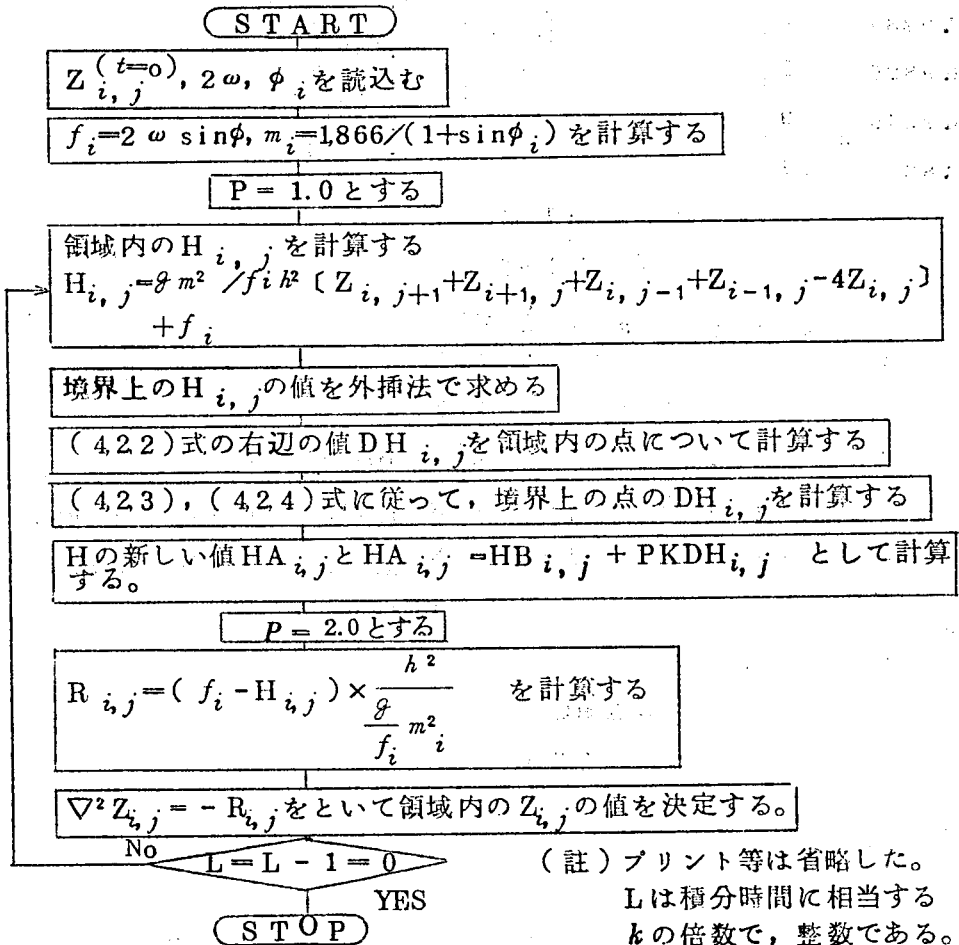 START
Z i, j (t=o), 2ω, φ i を読込む
f i=2 ω sinφ, m i=1,866/(1+sinφ i) を計算する
P = 1.0とする
領域内のH i, j を計算する
H i, j=g m² /f i h² 〔 Z i, j+1+Z i+1, j+Z i, j-1+Z i-1, j-4Z i, j〕
+f i
境界上のH i, jの値を外挿法で求める
(4,2.2)式の右辺の値DH i, jを領域内の点について計算する
(4,2.3), (4,2.4)式に従って, 境界上の点のDH i, jを計算する
Hの新しい値HA i, jとHA i, j=HB i, j + PKDH i, j として計算
する。
P = 2.0とする
R i, j=( f i -H i, j ) × h² / (g/f i m² i) を計算する
∇² Z i, j = - R i, jをといて領域内のZ i, jの値を決定する。
No
L=L-1=0
YES
STOP
(註)プリント等は省略した。
Lは積分時間に相当する
kの倍数で, 整数である。